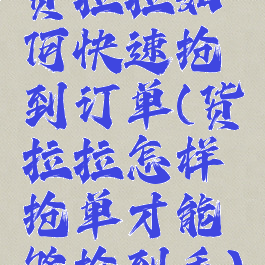 货拉拉如
何快速抢
到订单(货
拉拉怎样
抢单才能
够抢到手)